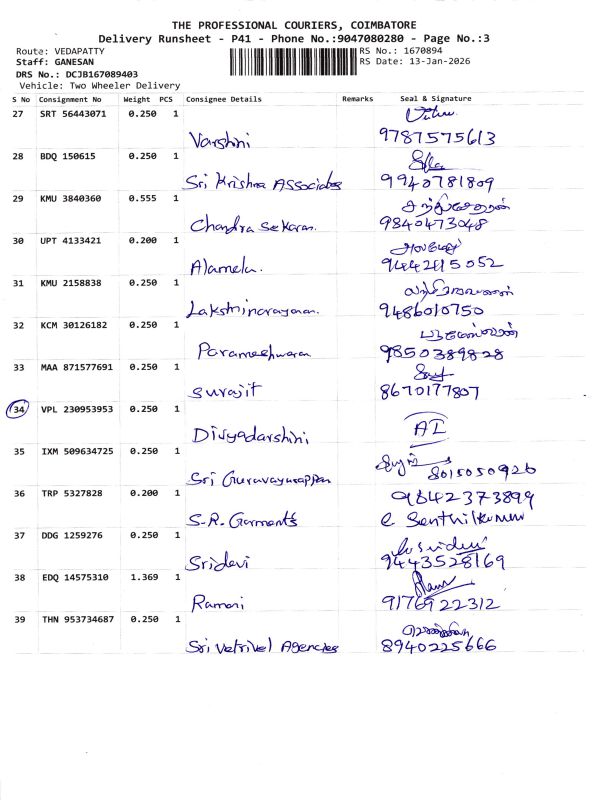 THE PROFESSIONAL COURIERS, COIMBATORE
Delivery Runsheet - P41 - Phone No.:9047080280 - Page No.:3
Route: VEDAPATTY RS No.: 1670894
Staff: GANESAN RS Date: 13-Jan-2026
DRS No.: DCJB167089403
Vehicle: Two Wheeler Delivery
S No Consignment No Weight PCS Consignee Details Remarks Seal & Signature
27 SRT 56443071 0.250 1
Varshini 9787575613
28 BDQ 150615 0.250 1
Sri Krishna Associates 9940781809
29 KMU 3840360 0.555 1 சந்திரசேகரன்
Chandra Sekaran. 9840473048
30 UPT 4133421 0.200 1 அலமேலு
Alamelu. 9442415052
31 KMU 2158838 0.250 1
Lakshminarayanan. 9486010750
32 KCM 30126182 0.250 1
Parameshwaran 9850389828
33 MAA 871577691 0.250 1
Surajit 8670177807
34 VPL 230953953 0.250 1
Divyadarshini AI
35 IXM 509634725 0.250 1
Sri Guruvayurappan 8015050926
36 TRP 5327828 0.200 1 9842373899
S.R. Garments C Senthilkumar
37 DDG 1259276 0.250 1 Sridevi
Sridevi 9443528169
38 EDQ 14575310 1.369 1
Ramani 9176922312
39 THN 953734687 0.250 1
Sri Vetrivel Agencies 8940225666